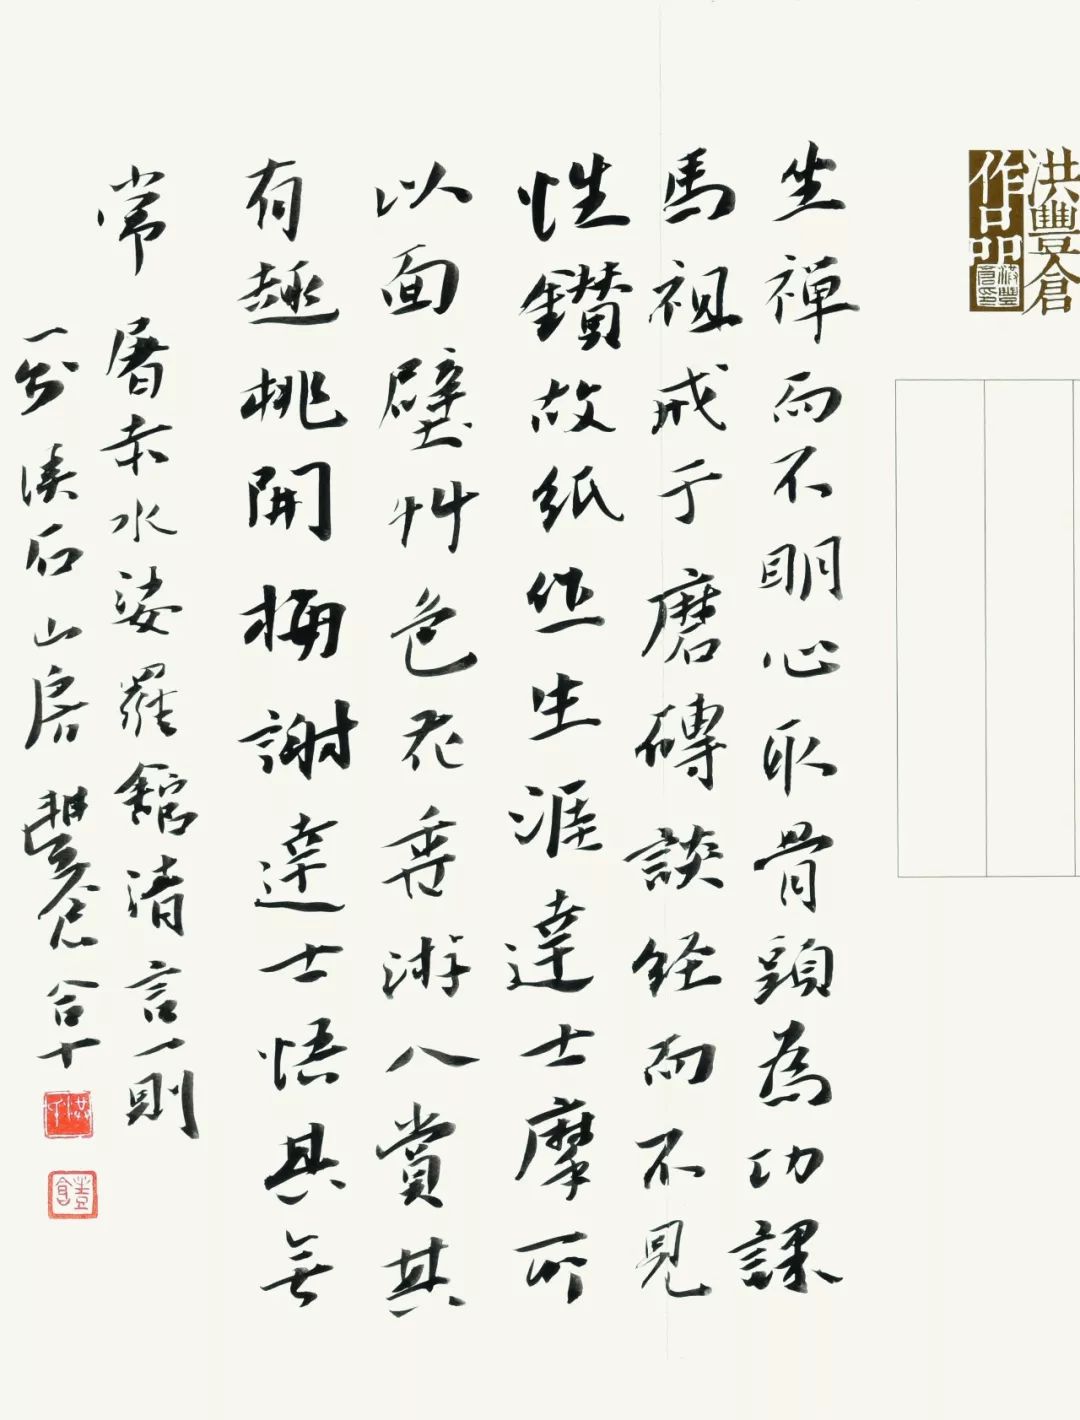 洪豐倉
作品
坐禪而不明心取骨頭為功課
馬祖戒于磨磚談經而不見
性鑽故紙作生涯達士摩所
以面壁艸色花香游人賞其
有趣桃開梅謝達士悟其無
常 屠赤水娑羅館清言一則
溪石山房豐倉合十
豐倉